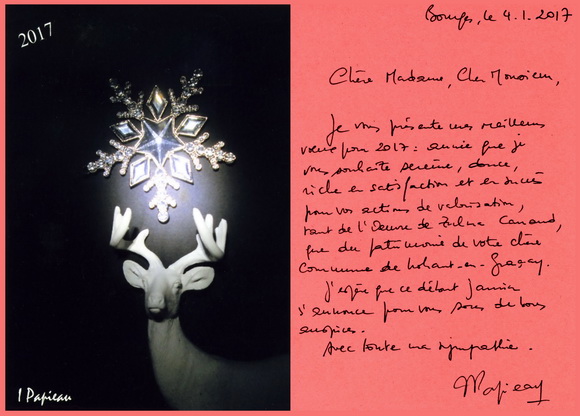 2017
I Papieau
Bourges, le 4.1.2017
Chère Madame, Cher Monsieur,
Je vous présente mes meilleurs
vœux pour 2017 : année que je
vous souhaite sereine, douce,
riche en satisfaction et en succès
pour vos actions de valorisation,
tant de l'Oeuvre de Zulma Carraud,
que du patrimoine de votre chère
Commune de Nohant-en-Graçay.
J'espère que ce début Janvier
s'annonce pour vous sous de bons
auspices.
Avec toute ma sympathie.